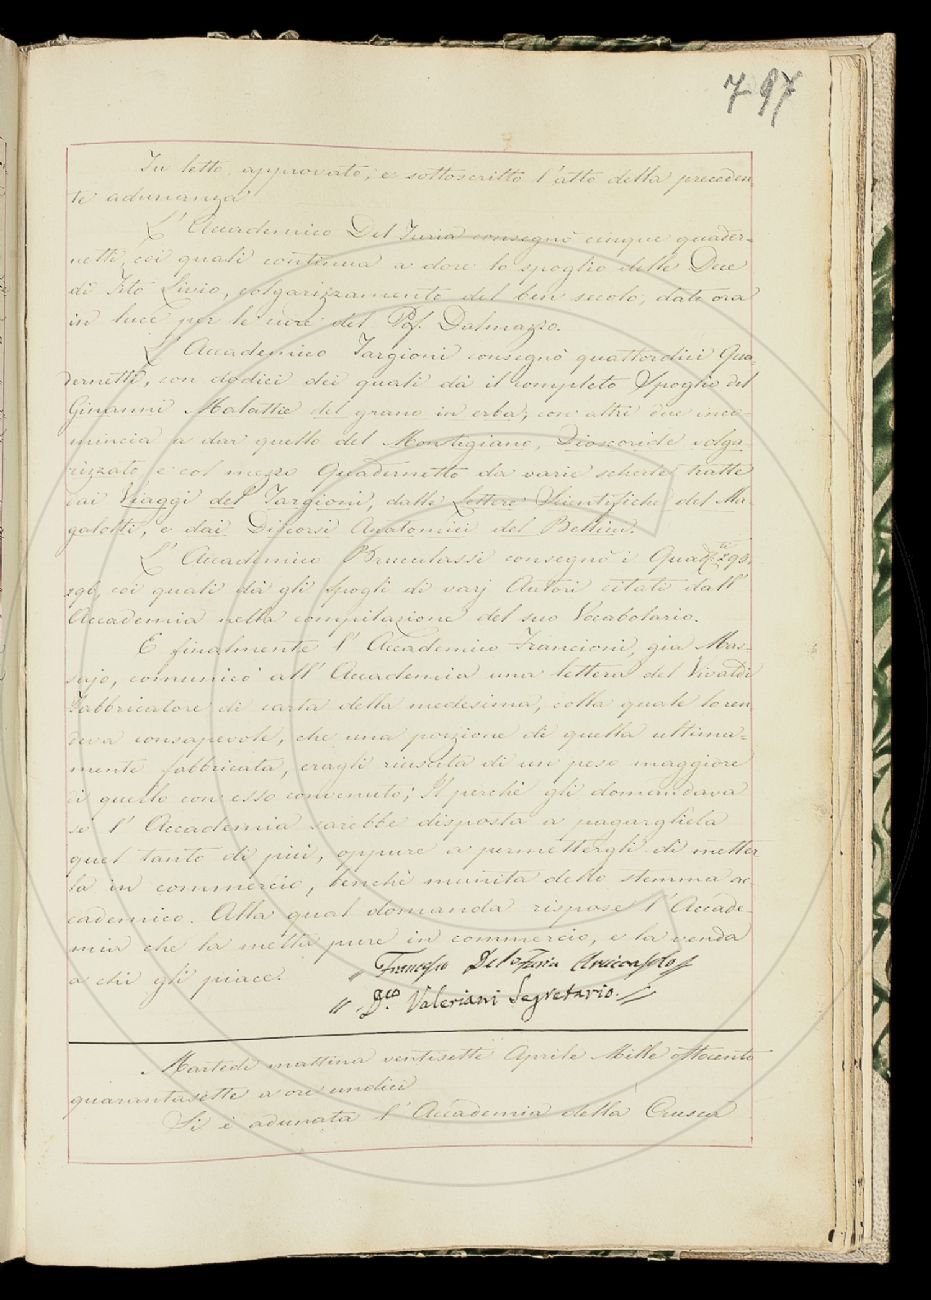 797
Fu letto, approvato, e sottoscritto l'atto della preceden
te adunanza
L'Accademico Del Furia consegnò cinque quader=
netti, coi quali continua a dare lo spoglio delle Dece
di Tito Livio, volgarizzamento del ben secolo, date ora
in luce per le cure del Pof. Dalmazzo.
L'Accademico Targioni consegnò quattordici Qua=
dernetti, con dodici dei quali dà il completo Spoglio del
Ginanni Malattie del grano in erba, con altri due inco=
mincia a dar quello del Montigiano, Dioscoride volga
rizzato, e col mezzo Quadernetto da varie schede tratte
dai Viaggi del Targioni, dalle Lettere Scientifiche del Ma
galotti, e dai Discorsi Anatomici del Bellini.
L'Accademico Brucalassi consegnò i Quad.ti 295,
296, coi quali dà gli spogli di varj Autori citati dall'
Accademia nella compilazione del suo Vocabolario.
E finalmente l'Accademico Francioni, già Mas=
sajo, comunicò all'Accademia una lettera del Vivaldi
Fabbricatore di carta della medesima, colla quale lo ren
deva consapevole, che una porzione di quella ultima=
mente fabbricata, eragli riuscita di un peso maggiore
di quello con esso convenuto; Il perchè gli domandava
se l'Accademia sarebbe disposta a pagargliela
quel tanto di più, oppure a permettergli di metter
la in commercio, benchè munita dello stemma ac
cademico. Alla qual domanda rispose l'Accade=
mia che la metta pure in commercio, e la venda
a chi gli piace.
" Francesco Del Furia Arciconsolo "
" D.co Valeriani Segretario. "
Martedì mattina ventisette Aprile Mille ottocento
quarantasette a ore undici
Si è adunata l'Accademia della Crusca